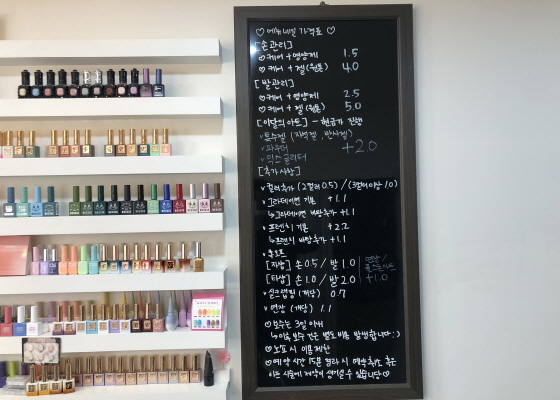 ♡ 예뉘네일 가격표 ♡
[손관리]
♡ 케어 + 영양제 1.5
♡ 케어 + 젤(원톤) 4.0
[발관리]
♡ 케어 + 영양제 2.5
♡ 케어 + 젤(원톤) 5.0
[이달의 아트] - 현금가 진행
v 특수젤 (자석젤, 반사젤)
v 파우더 +2.0
v 믹스글리터
[추가사항]
v 컬러추가 (2컬러 0.5) / (3컬러이상 1.0)
v 그라데이션 기본 +1.1
↳ 그라데이션 바탕추가 +1.1
v 프렌치 기본 +2.2
↳ 프렌치 바탕추가 +1.1
v 쏙오프
[자샵] 손 0.5 / 발 1.0
[타샵] 손 1.0 / 발 2.0 +1.0
v 실크랩핑 (개당) 0.7
v 연장 (개당) 1.1
♡ 보수는 3일 이내
↳ 이후 보수 건은 별도 비용 발생합니다 :)
♡ 노쇼 시 이용제한
♡ 예약 시간 15분 경과 시 예약취소 혹은
이는 시술에 제약이 생기실 수 있습니다 ♡